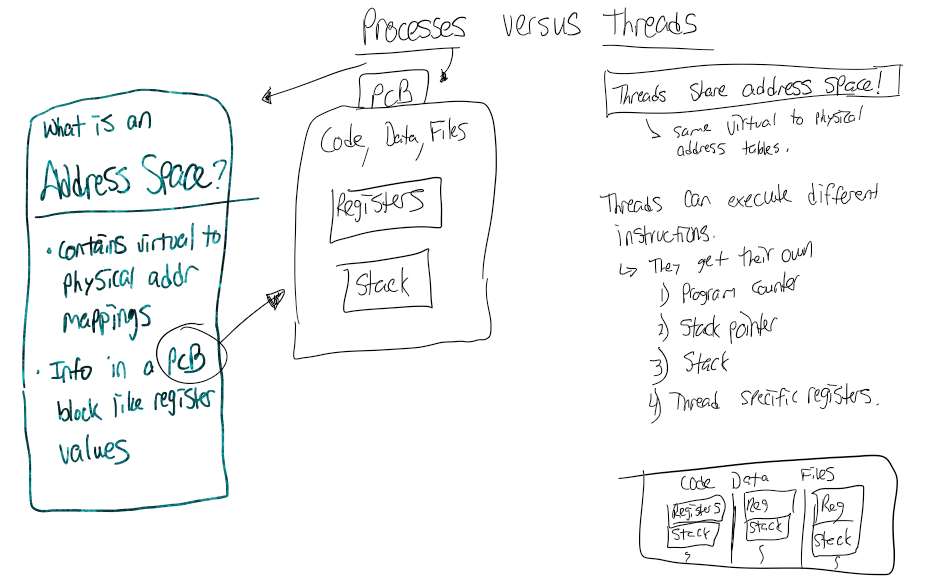 Processes versus Threads
What is an
Address Space?
• Contains virtual to
physical addr
mappings
• Info in a PCB
block like register
values
PCB
Code, Data, Files
Registers
Stack
Threads share address space!
same virtual to physical
address tables.
Threads can execute different
instructions.
They get their own
1) Program counter
2) Stack pointer
3) Stack
4) Thread specific registers.
Code Data Files
Registers Reg Reg
Stack Stack Stack